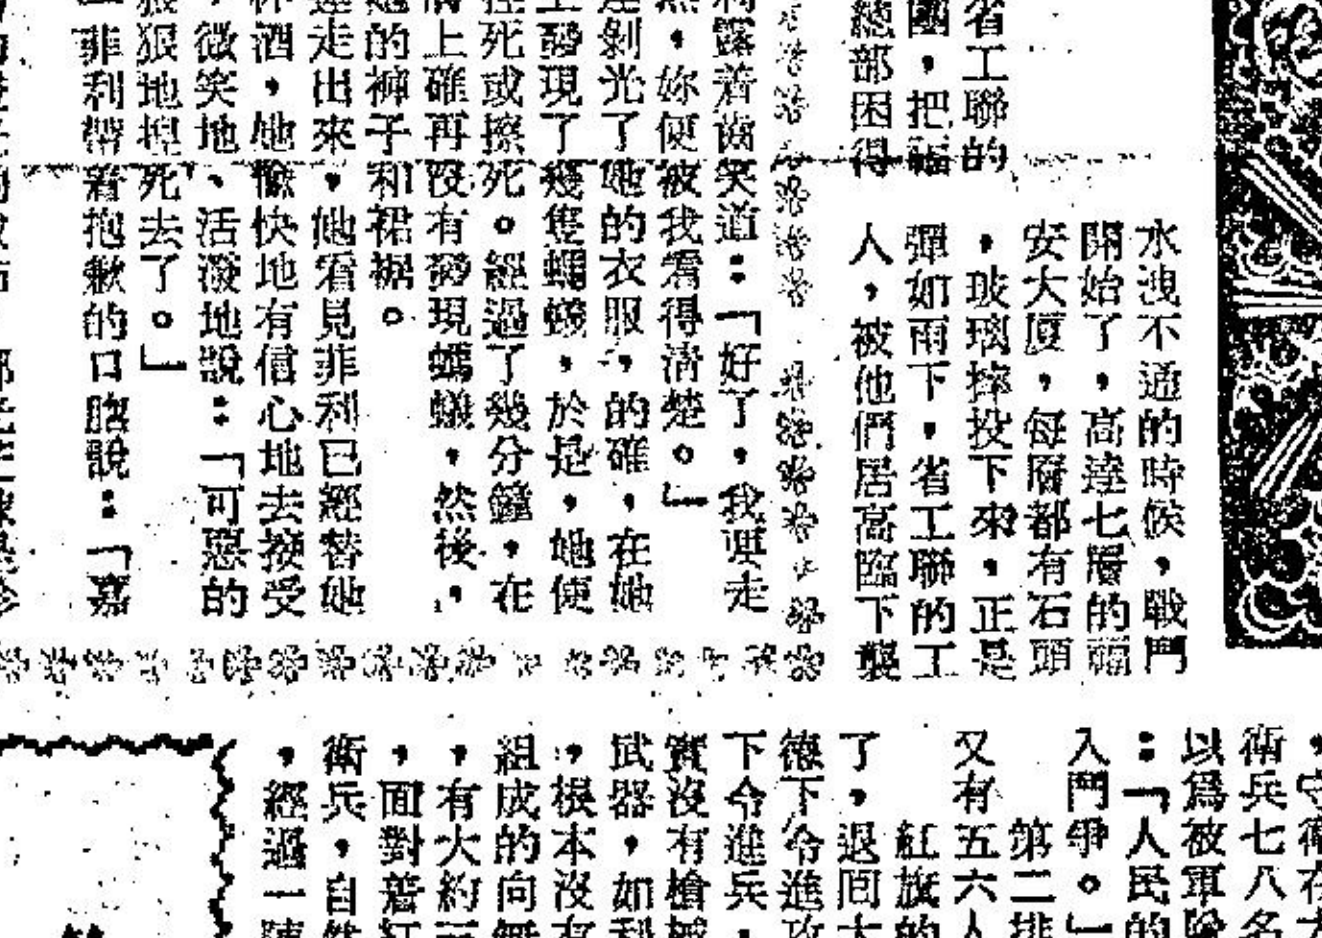 省工聯的
團，把福
總部困得
水洩不通的時候，戰鬥
開始了，高達七層的福
安大厦，每層都有石頭
，玻璃摔投下來，正是
彈如雨下，省工聯的工
人，被他們居高臨下襲
利露着齒笑道：「好了，我要走
，妳便被我看得清楚。」
剝光了她的衣服，的確，在她
上發現了幾隻螞蟻，於是，她便
捏死或擦死。經過了幾分鐘，在
上確再沒有發現螞蟻，然後，
她的褲子和裙裾。
走出來，他看見菲利已經替她
杯酒，她愉快地有信心地去接受
，微笑地、活潑地說：「可惡的
狠狠地捏死去了。」
菲利帶着抱歉的口脗說：「嘉
，守衛在
衛兵七八名
以爲被軍
：「人民的
入鬥爭。」
第二排
又有五六人
紅旗的
了，退回大
德下令進攻
下令進兵，
實沒有槍械
武器，如利
，根本沒有
組成的向無
，有大約三
，面對着紅
衛兵，自然
，經過一陣